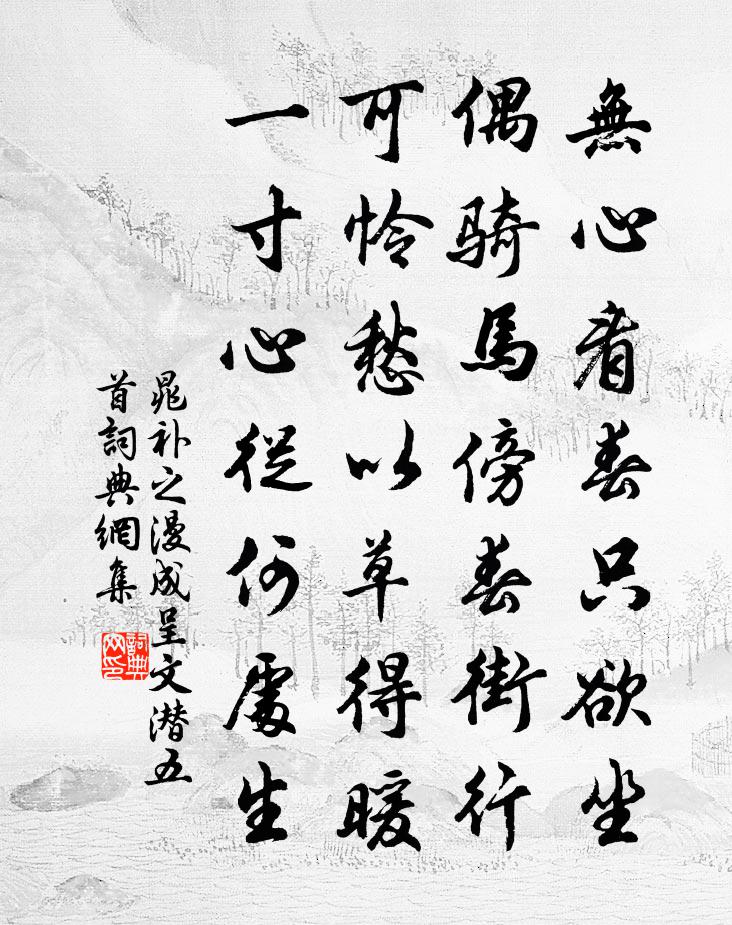 無心看春只欲坐
偶騎馬傍春街行
可怜愁以草得暖
一寸心從何處生
晁补之漫成呈文潜五
首詞典網集
詞典网印